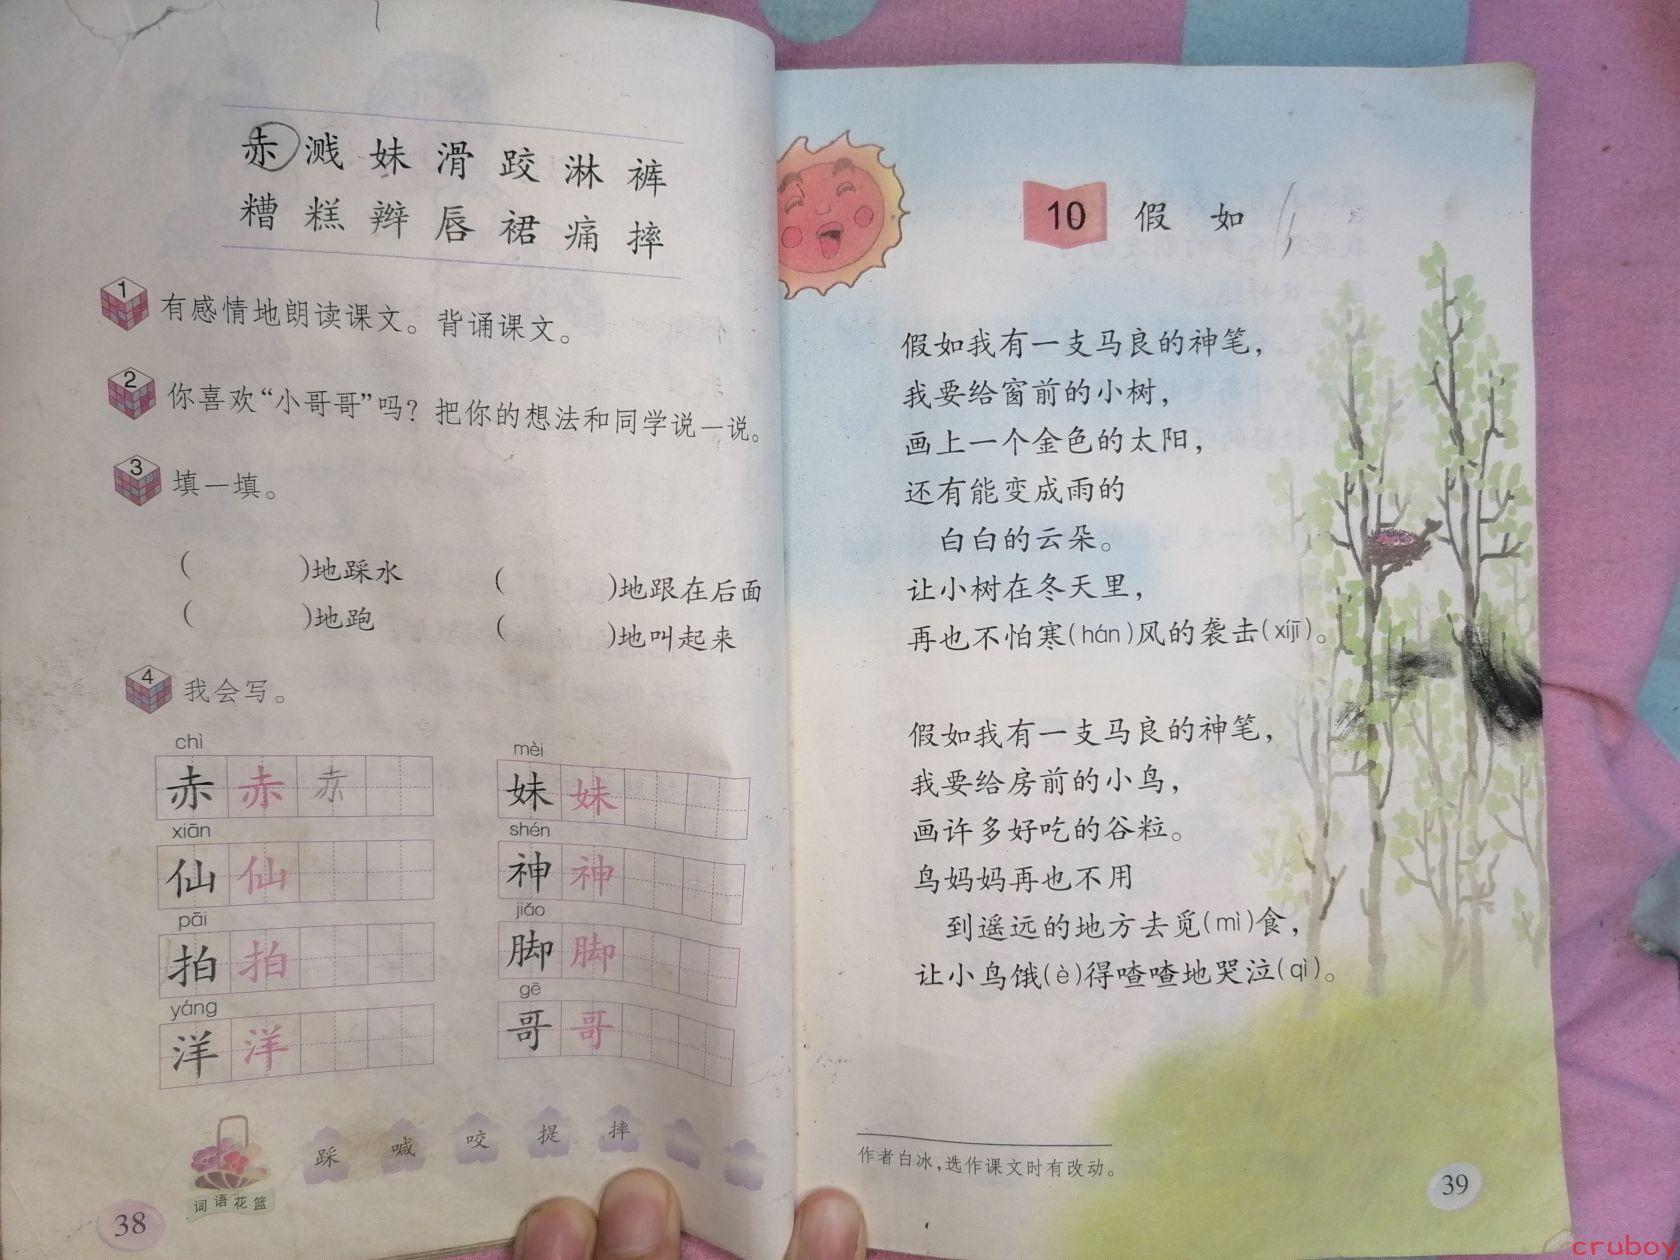 赤 溅 妹 滑 跤 淋 裤
糟 糕 辫 唇 裙 痛 摔
1 有感情地朗读课文。背诵课文。
2 你喜欢“小哥哥”吗？把你的想法和同学说一说。
3 填一填。
( )地踩水 ( )地跟在后面
( )地跑 ( )地叫起来
4 我会写。
chì mèi
赤 赤 赤 妹 妹
xiān shén
仙 仙 神 神
pāi jiǎo
拍 拍 脚 脚
yáng gē
洋 洋 哥 哥
踩 喊 咬 提 摔
词语花篮
38
10 假 如
假如我有一支马良的神笔，
我要给窗前的小树，
画上一个金色的太阳，
还有能变成雨的
白白的云朵。
让小树在冬天里，
再也不怕寒(hán)风的袭击(xíjī)。
假如我有一支马良的神笔，
我要给房前的小鸟，
画许多好吃的谷粒。
鸟妈妈再也不用
到遥远的地方去觅(mì)食，
让小鸟饿(è)得喳喳地哭泣(qì)。
作者白冰，选作课文时有改动。
39
cruboy